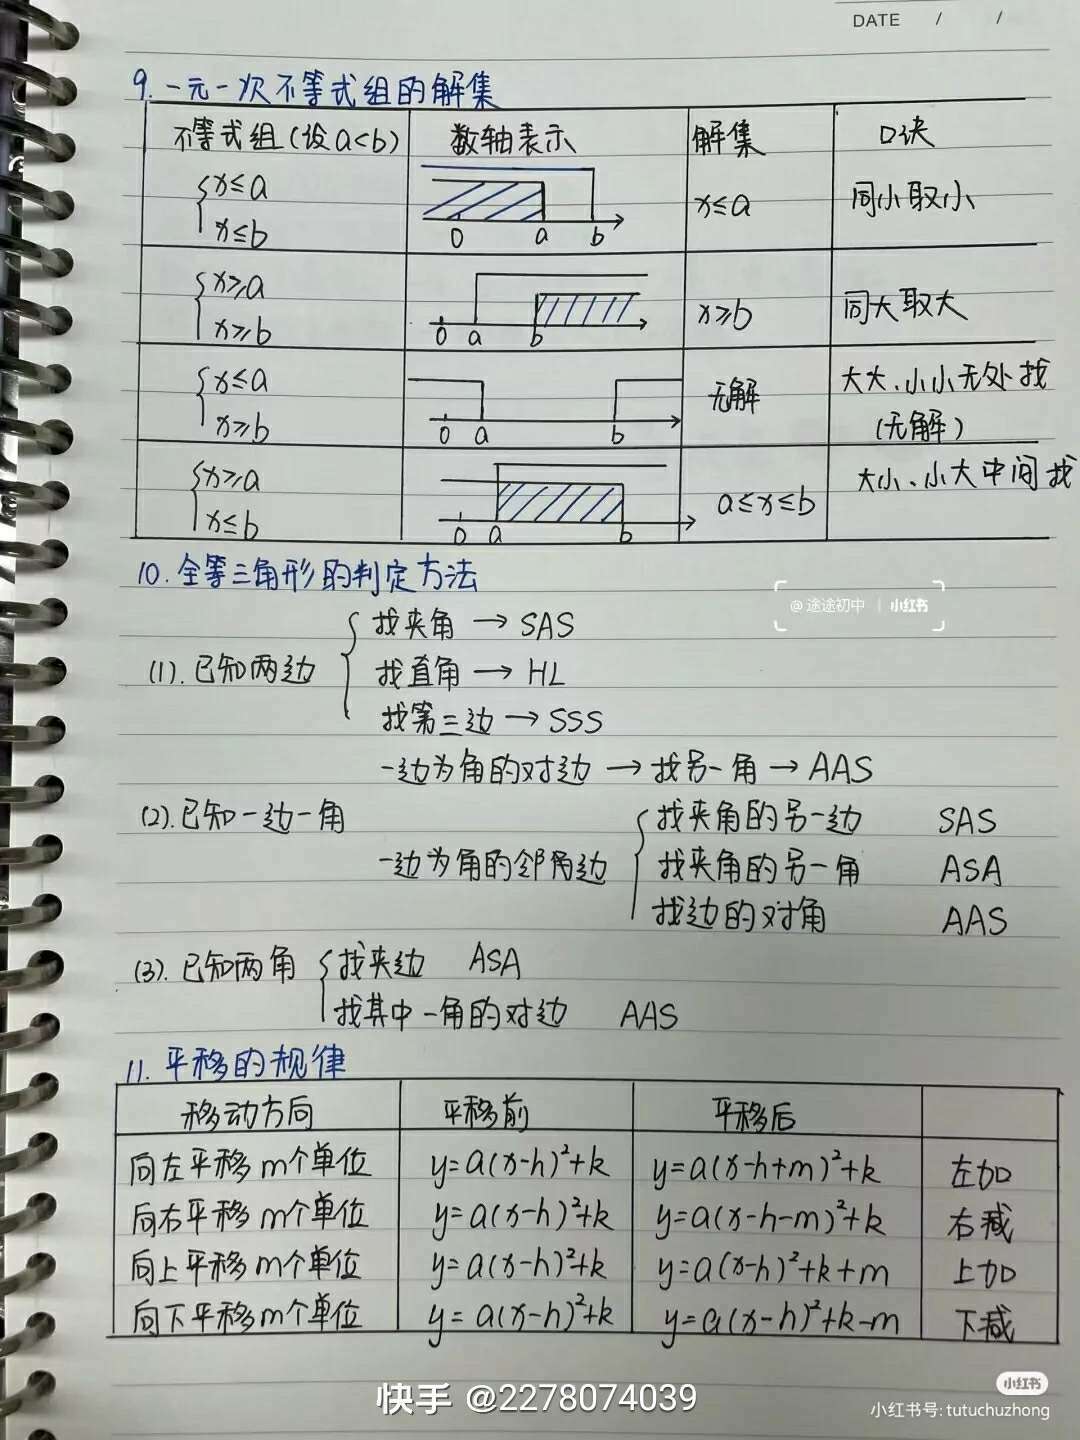 DATE / /
9. 一元一次不等式组的解集
不等式组(设a<b) 数轴表示 解集 口诀
{x≤a x≤b 0 a b x≤a 同小取小
{x≥a x≥b 0 a b x≥b 同大取大
{x≤a x≥b 0 a b 无解 大大、小小无处找
(无解)
{x≥a x≤b 0 a b a≤x≤b 大小、小大中间找
10. 全等三角形的判定方法
@途途初中 | 小红书
(1). 已知两边 { 找夹角 → SAS
找直角 → HL
找第三边 → SSS
(2). 已知一边一角
一边为角的对边 → 找另一角 → AAS
一边为角的邻角边 { 找夹角的另一边 SAS
找夹角的另一角 ASA
找边的对角 AAS
(3). 已知两角 { 找夹边 ASA
找其中一角的对边 AAS
11. 平移的规律
移动方向 平移前 平移后
向左平移m个单位 y=a(x-h)²+k y=a(x-h+m)²+k 左加
向右平移m个单位 y=a(x-h)²+k y=a(x-h-m)²+k 右减
向上平移m个单位 y=a(x-h)²+k y=a(x-h)²+k+m 上加
向下平移m个单位 y=a(x-h)²+k y=a(x-h)²+k-m 下减
快手 @2278074039
小红书
小红书号: tutuchuzhong